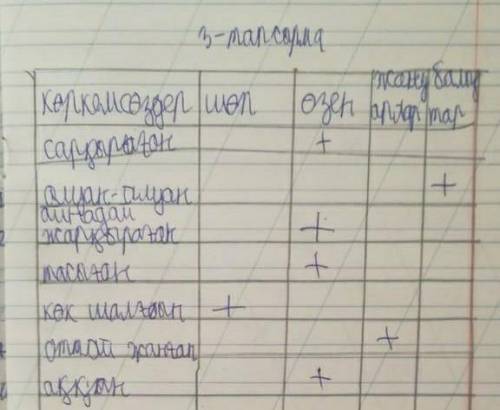 3-тапсырма
көркемсөздер шөп өзен жану арлар балықтар
сарқыраған +
алуан-алуан +
айнадай жарқыраған +
тасыған +
көк шалғын +
оттай жанған +
аққан +